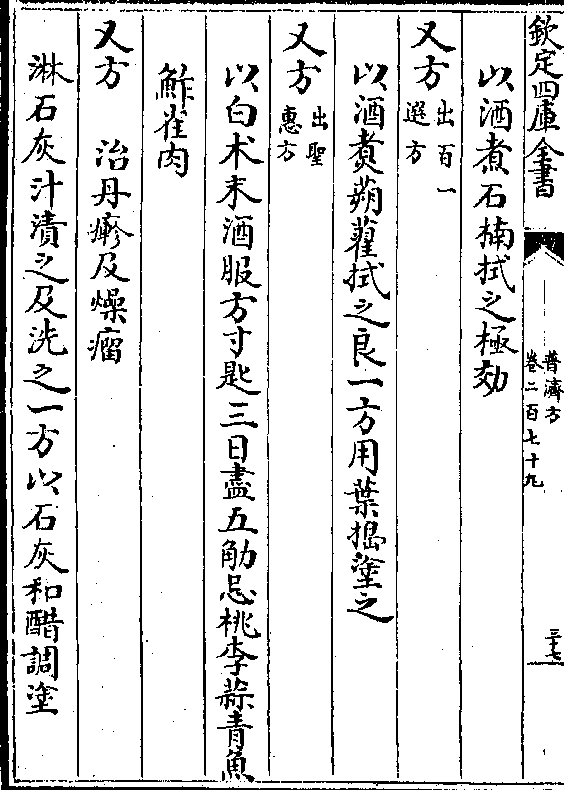 欽定四庫全書
普濟方
卷二百七十九
三十七
以酒煮石楠拭之極効
又方出百一選方
以酒煑蒴藋拭之良一方用葉搗塗之
又方出聖惠方
以白术末酒服方寸匙三日盡五觔忌桃李蒜青魚
鮓雀肉
又方　治丹𤺋及燥瘤
淋石灰汁漬之及洗之一方以石灰和醋調塗